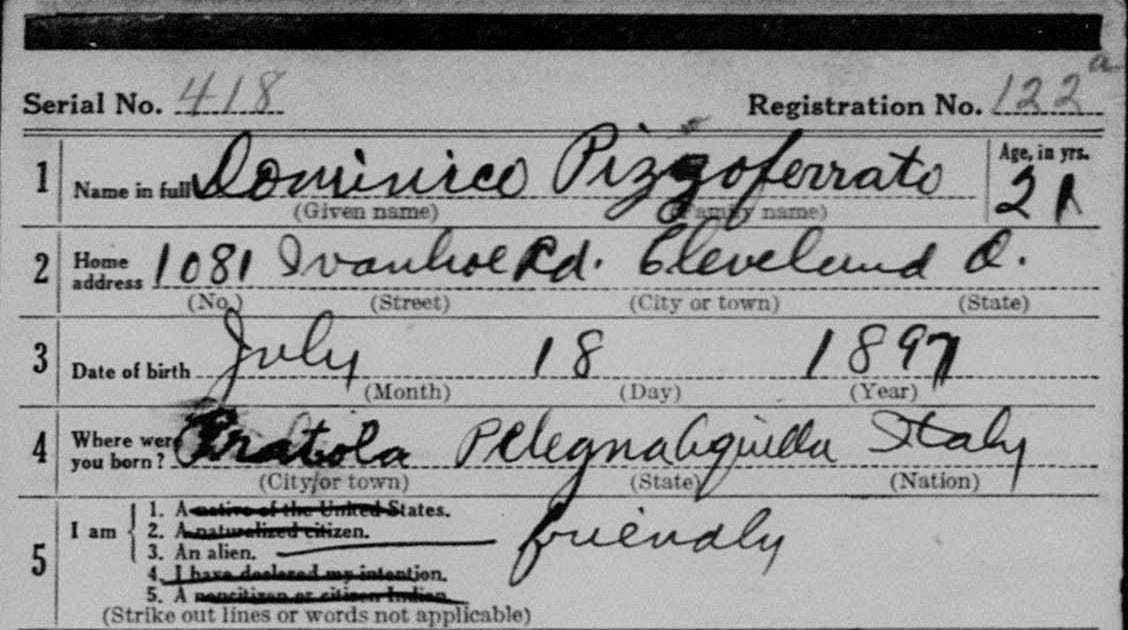 Serial No. 418 Registration No. 122 a
1 Name in full Dominico Pizzoferrato Age, in yrs.
(Given name) (Family name) 21
2 Home address 1081 Ivanhoe Rd. Cleveland O.
(No.) (Street) (City or town) (State)
3 Date of birth July 18 1897
(Month) (Day) (Year)
4 Where were you born? Pratola Pelegna Aquilla Italy
(City or town) (State) (Nation)
5 I am
1. A native of the United States.
2. A naturalized citizen.
3. An alien. friendly
4. I have declared my intention.
5. A noncitizen or citizen Indian.
(Strike out lines or words not applicable)